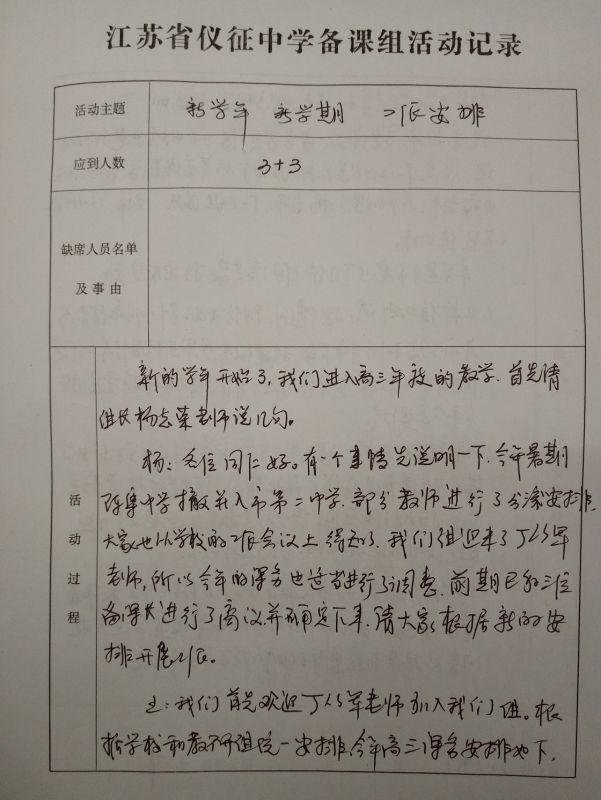 江苏省仪征中学备课组活动记录
活动主题
新学年 新学期 工作安排
应到人数
3+3
缺席人员名单
及事由
活动过程
新的学年开始了,我们进入高三年级的教学.首先请
组长杨志荣老师说几句。
杨:各位同仁好。有一个事情先说明一下.今年暑期
陈集中学撤并入市第二中学.部分教师进行了分流安排.
大家也从学校的工作会议上得知了.我们组迎来了丁军
老师,所以今年的课务也适当进行了调整.前期已和三位
备课长进行了商议并确定下来.请大家根据新的安
排开展工作。
王:我们首先欢迎丁军老师加入我们组。根
据学校和教研组统一安排.今年高三课务安排如下.